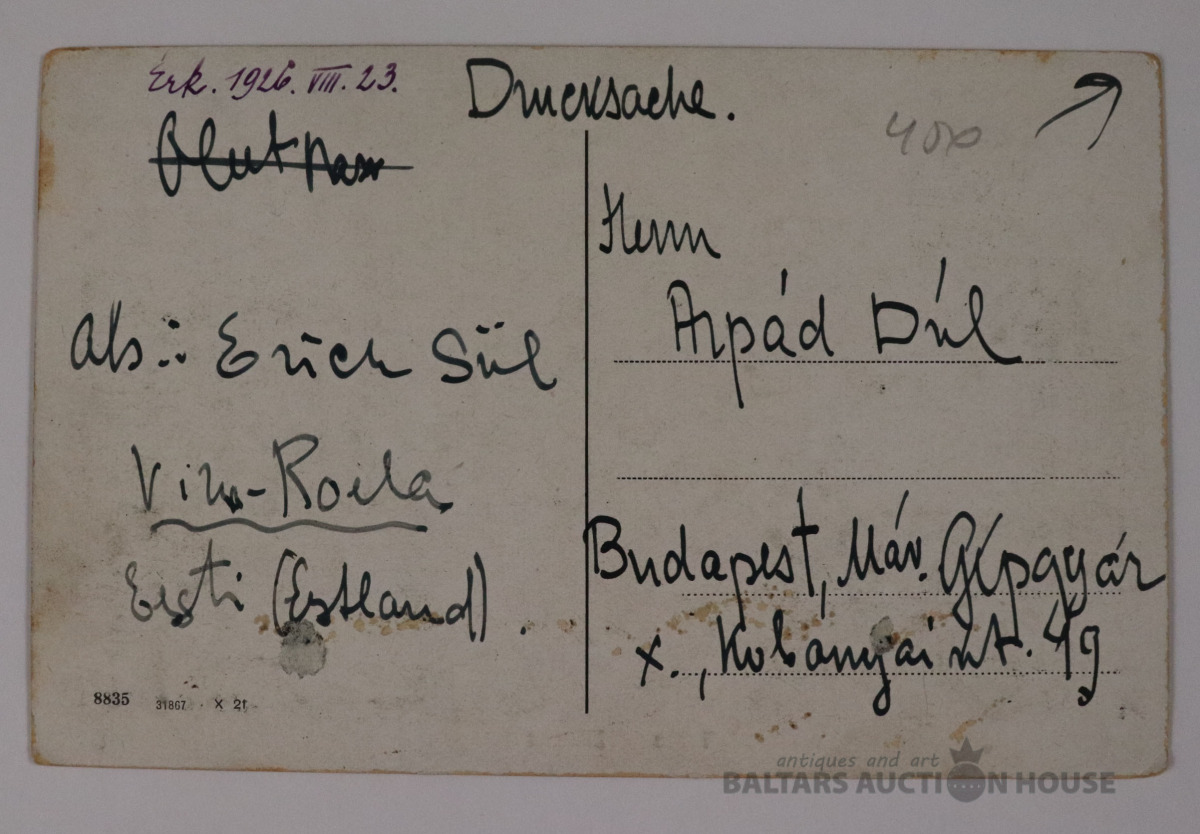 Érk. 1926. VIII. 23.
Drucksache.
400
Abs.: Erich Sül
Viru-Roela
Eesti (Estland).
8835 31867 X 21
Herrn
Árpád Dúl
Budapest, Máv. Gépgyár
X., Kobanyai ut. 49
antiques and art
BALTARS AUCTION HOUSE